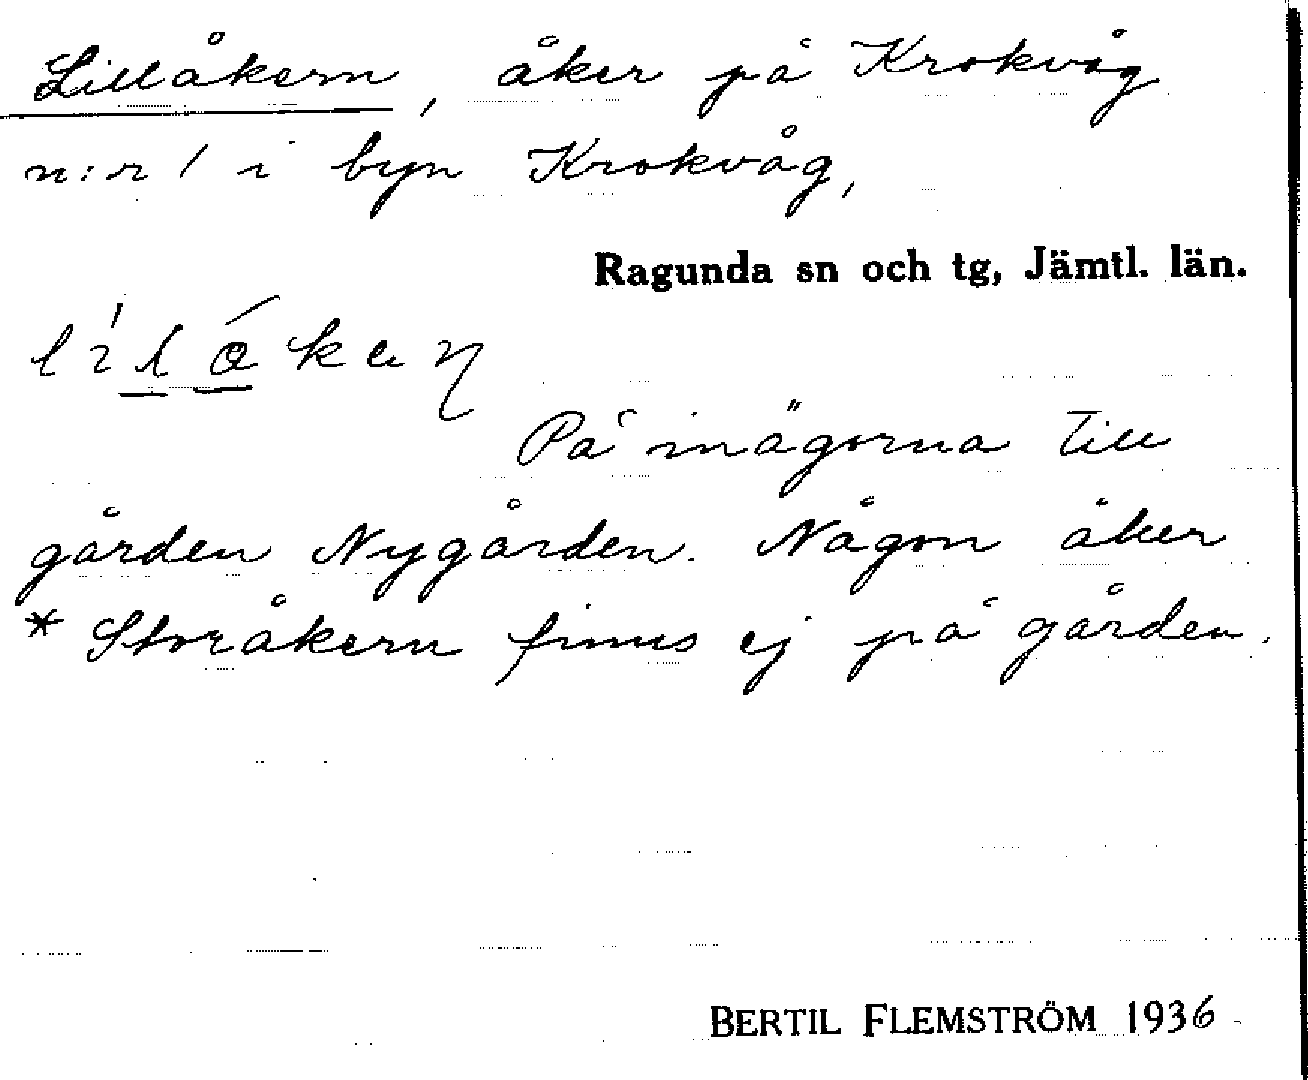 Lillåkern, åker på Krokvåg
n:r 1 i byn Krokvåg,
Ragunda sn och tg, Jämtl. län.
På inägorna till
gården Nygården. Någon åker
* Storåkern finns ej på gården.
BERTIL FLEMSTRÖM 1936